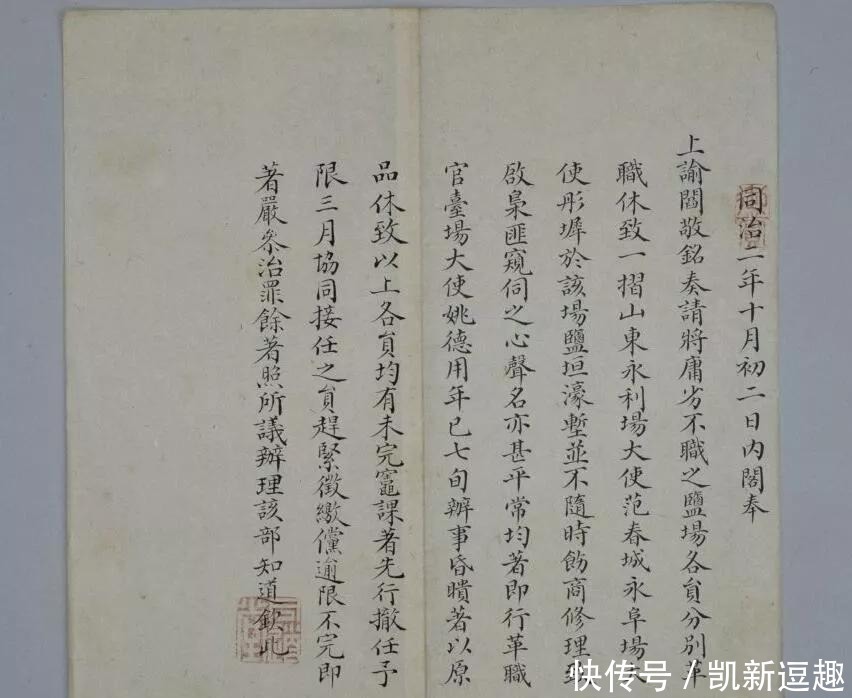 同治二年十月初二日內閣奉
上諭閻敬銘奏請將庸劣不職之鹽場各員分別革
職休致一摺山東永利場大使范春城永阜場大
使彤墀於該場鹽垣濠塹並不隨時飭商修理致
啟梟匪窺伺之心聲名亦甚平常均著即行革職
官臺場大使姚德用年已七旬辦事昏瞶著以原
品休致以上各員均有未完竈課著先行撤任予
限三月協同接任之員趕緊徵繳儻逾限不完即
著嚴叅治罪餘著照所議辦理該部知道欽此
快传号/凯新逗趣